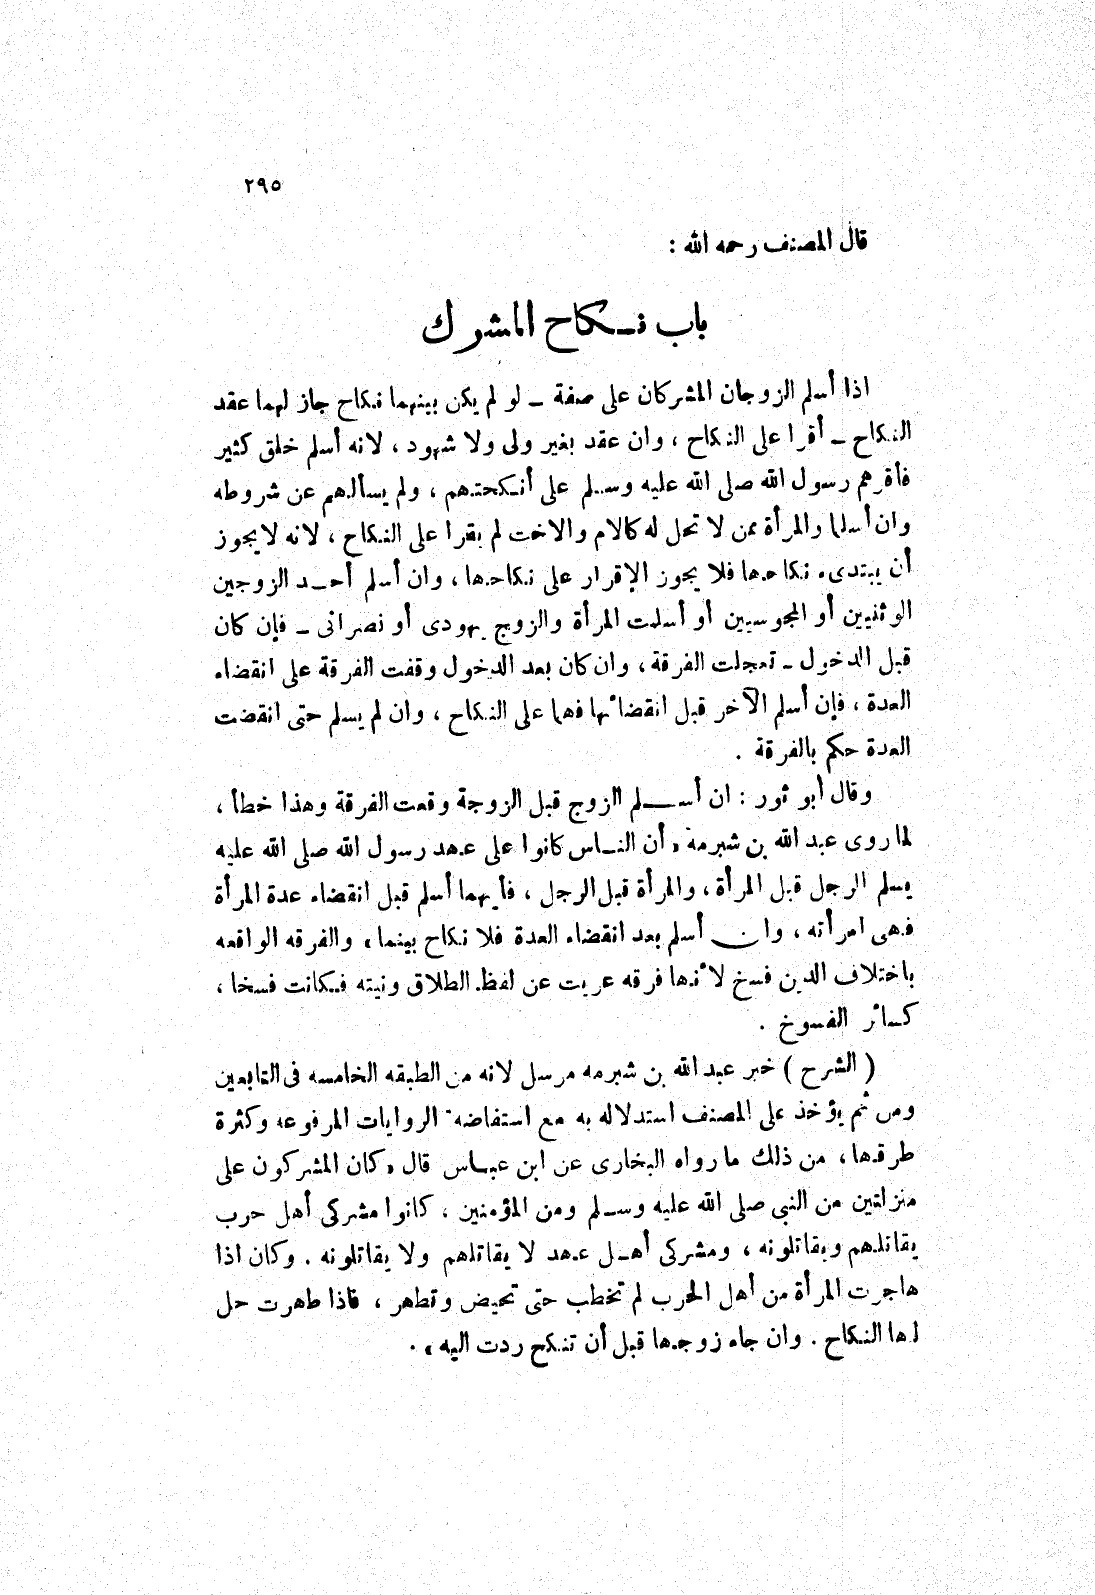 ٢٩٥
قال المصنف رحمه الله :
باب نكاح المشرك
اذا أسلم الزوجان المشركان على صفة ــ لو لم يكن بينهما نكاح جاز لهما عقد
النكاح ــ أقرا على النكاح ، وان عقد بغير ولى ولا شهود ، لانه أسلم خلق كثير
فأقرهم رسول الله صلى الله عليه وسلم على أنكحتهم ، ولم يسألهم عن شروطه
وان أسلما والمرأة ممن لا تحل له كالام والاخت لم يقرا على النكاح ، لانه لا يجوز
أن يبتدىء نكاحها فلا يجوز الإقرار على نكاحها ، وان أسلم أحد الزوجين
الوثنيين أو المجوسيين أو أسلمت المرأة والزوج يهودى أو نصرانى ــ فإن كان
قبل الدخول ــ تعجلت الفرقة ، وان كان بعد الدخول وقفت الفرقة على انقضاء
العدة ، فإن أسلم الآخر قبل انقضائها فهما على النكاح ، وان لم يسلم حتى انقضت
العدة حكم بالفرقة .
وقال أبو ثور : ان أسلم الزوج قبل الزوجة وقعت الفرقة وهذا خطأ ،
لما روى عبد الله بن شبرمة « أن الناس كانوا على عهد رسول الله صلى الله عليه
يسلم الرجل قبل المرأة ، والمرأة قبل الرجل ، فأيهما أسلم قبل انقضاء عدة المرأة
فهى امرأته ، وان أسلم بعد انقضاء العدة فلا نكاح بينما » والفرقه الواقعه
باختلاف الدين فسخ لأنها فرقه عريت عن لفظ الطلاق ونيته فكانت فسخا ،
كسائر الفسوخ .
( الشرح ) خبر عبد الله بن شبرمه مرسل لانه من الطبقه الخامسه فى التابعين
ومن ثم يؤخذ على المصنف استدلاله به مع استفاضه الروايات المرفوعه وكثرة
طرقها ، من ذلك ما رواه البخارى عن ابن عباس قال « كان المشركون على
منزلتين من النبى صلى الله عليه وسلم ومن المؤمنين ، كانوا مشركى أهل حرب
يقاتلهم ويقاتلونه ، ومشركى أهل عهد لا يقاتلهم ولا يقاتلونه . وكان اذا
هاجرت المرأة من أهل الحرب لم تخطب حتى تحيض وتطهر ، فاذا طهرت حل
لها النكاح . وان جاء زوجها قبل أن تنكح ردت اليه » .